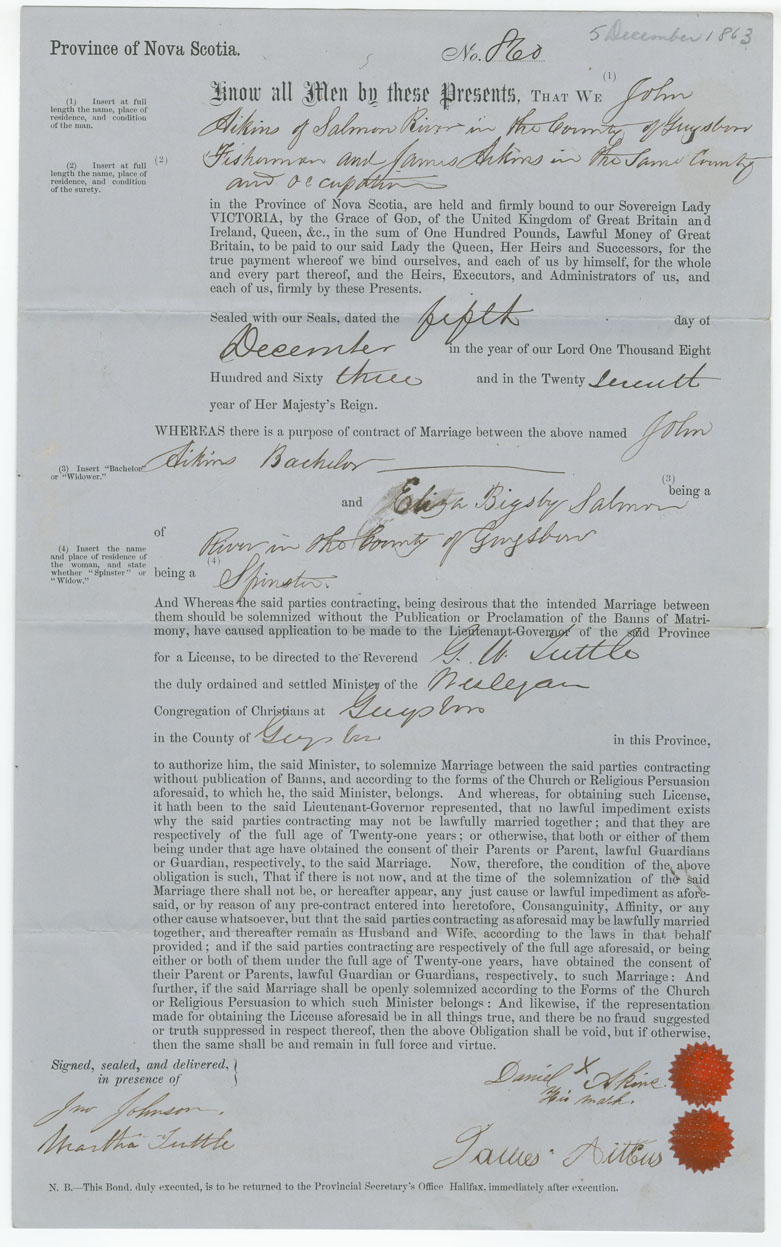 5 December 1863
Province of Nova Scotia.
No. 860
(1) Insert at full
length the name, place of
residence, and condition
of the man.
Know all Men by these Presents, THAT WE (1) John
Aikins of Salmon River in the County of Guysboro
(2) Insert at full
length the name, place of
residence, and condition
of the surety.
(2) Fisherman and James Aikins in the Same County
and occupation
in the Province of Nova Scotia, are held and firmly bound to our Sovereign Lady
VICTORIA, by the Grace of GOD, of the United Kingdom of Great Britain and
Ireland, Queen, &c., in the sum of One Hundred Pounds, Lawful Money of Great
Britain, to be paid to our said Lady the Queen, Her Heirs and Successors, for the
true payment whereof we bind ourselves, and each of us by himself, for the whole
and every part thereof, and the Heirs, Executors, and Administrators of us, and
each of us, firmly by these Presents.
Sealed with our Seals, dated the fifth day of
December in the year of our Lord One Thousand Eight
Hundred and Sixty three and in the Twenty seventh
year of Her Majesty's Reign.
WHEREAS there is a purpose of contract of Marriage between the above named John
(3) Insert "Bachelor"
or "Widower."
Aikins Bachelor
(3) being a
and Eliza Bigsby Salmon
of River in the County of Guysboro
(4) Insert the name
and place of residence of
the woman, and state
whether "Spinster" or
"Widow."
being a (4) Spinster.
And Whereas the said parties contracting, being desirous that the intended Marriage between
them should be solemnized without the Publication or Proclamation of the Banns of Matri-
mony, have caused application to be made to the Lieutenant-Governor of the said Province
for a License, to be directed to the Reverend G. W. Tuttle
the duly ordained and settled Minister of the Weslegan
Congregation of Christians at Guysboro
in the County of Guysboro in this Province,
to authorize him, the said Minister, to solemnize Marriage between the said parties contracting
without publication of Banns, and according to the forms of the Church or Religious Persuasion
aforesaid, to which he, the said Minister, belongs. And whereas, for obtaining such License,
it hath been to the said Lieutenant-Governor represented, that no lawful impediment exists
why the said parties contracting may not be lawfully married together; and that they are
respectively of the full age of Twenty-one years; or otherwise, that both or either of them
being under that age have obtained the consent of their Parents or Parent, lawful Guardians
or Guardian, respectively, to the said Marriage. Now, therefore, the condition of the above
obligation is such, That if there is not now, and at the time of the solemnization of the said
Marriage there shall not be, or hereafter appear, any just cause or lawful impediment as afore-
said, or by reason of any pre-contract entered into heretofore, Consanguinity, Affinity, or any
other cause whatsoever, but that the said parties contracting as aforesaid may be lawfully married
together, and thereafter remain as Husband and Wife, according to the laws in that behalf
provided; and if the said parties contracting are respectively of the full age aforesaid, or being
either or both of them under the full age of Twenty-one years, have obtained the consent of
their Parent or Parents, lawful Guardian or Guardians, respectively, to such Marriage: And
further, if the said Marriage shall be openly solemnized according to the Forms of the Church
or Religious Persuasion to which such Minister belongs: And likewise, if the representation
made for obtaining the License aforesaid be in all things true, and there be no fraud suggested
or truth suppressed in respect thereof, then the above Obligation shall be void, but if otherwise,
then the same shall be and remain in full force and virtue.
Signed, sealed, and delivered,
in presence of
Daniel X Akins
His mark.
Jno Johnson.
Martha Tuttle
James Aitkus
N. B.—This Bond, duly executed, is to be returned to the Provincial Secretary's Office Halifax, immediately after execution.